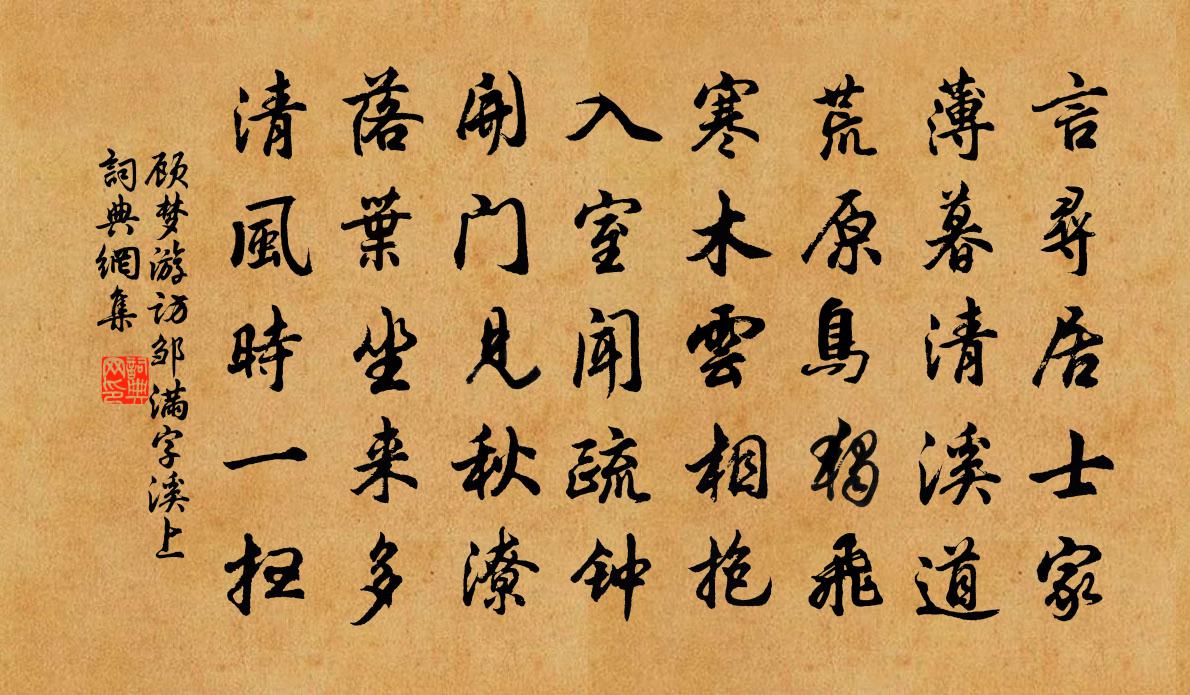 言尋居士家
薄暮清溪道
荒原鳥獨飛
寒木雲相抱
入室聞疏钟
開門見秋潦
落葉坐来多
清風時一扫
顾梦游访邹满字溪上
詞典網集
詞典网印